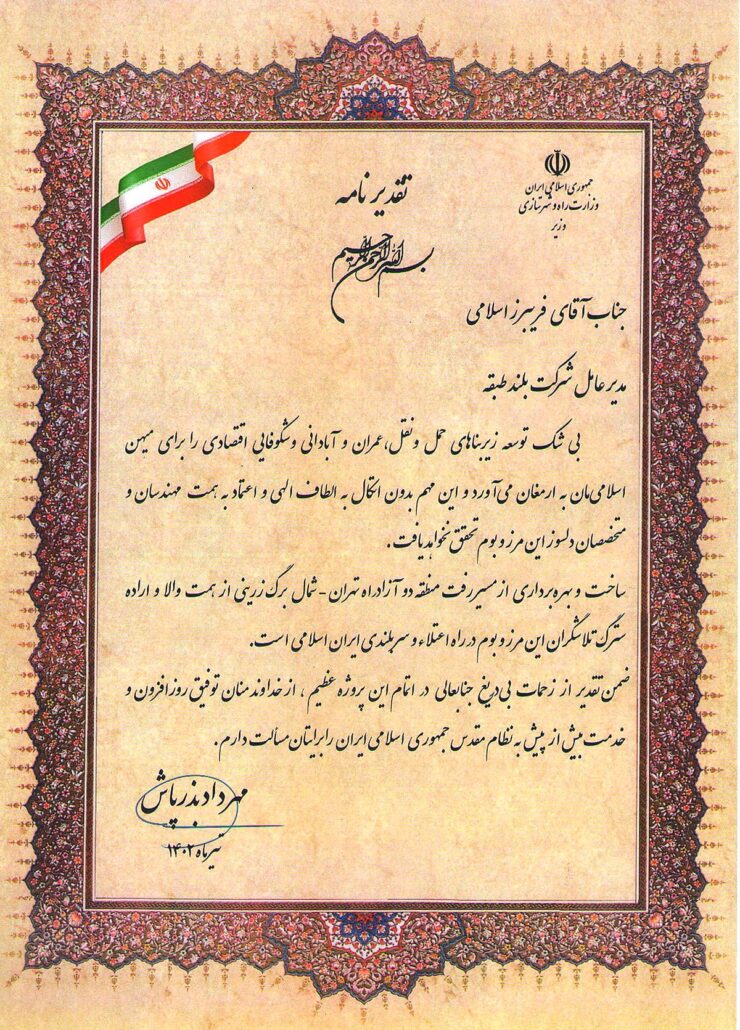 جمهوری اسلامی ایران
وزارت راه و شهرسازی
وزیر
تقدیر نامه
بسم الله الرحمن الرحیم
جناب آقای فریبرز اسلامی
مدیر عامل شرکت بلند طبقه
بی شک توسعه زیربناهای حمل و نقل، عمران و آبادانی و شکوفایی اقتصادی را برای میهن
اسلامی‌مان به ارمغان می‌آورد و این مهم بدون اتکال به الطاف الهی و اعتماد به همت مهندسان و
متخصصان دلسوز این مرز و بوم تحقق نخواهد یافت.
ساخت و بهره‌برداری از مسیر رفت منطقه دو آزادراه تهران - شمال برگ زرینی از همت والا و اراده
سترگ تلاشگران این مرز و بوم در راه اعتلاء و سربلندی ایران اسلامی است.
ضمن تقدیر از زحمات بی‌دریغ جنابعالی در اتمام این پروژه عظیم، از خداوند منان توفیق روز افزون و
خدمت بیش از پیش به نظام مقدس جمهوری اسلامی ایران را برایتان مسألت دارم.
مهرداد بذرپاش
تیر ماه ۱۴۰۲